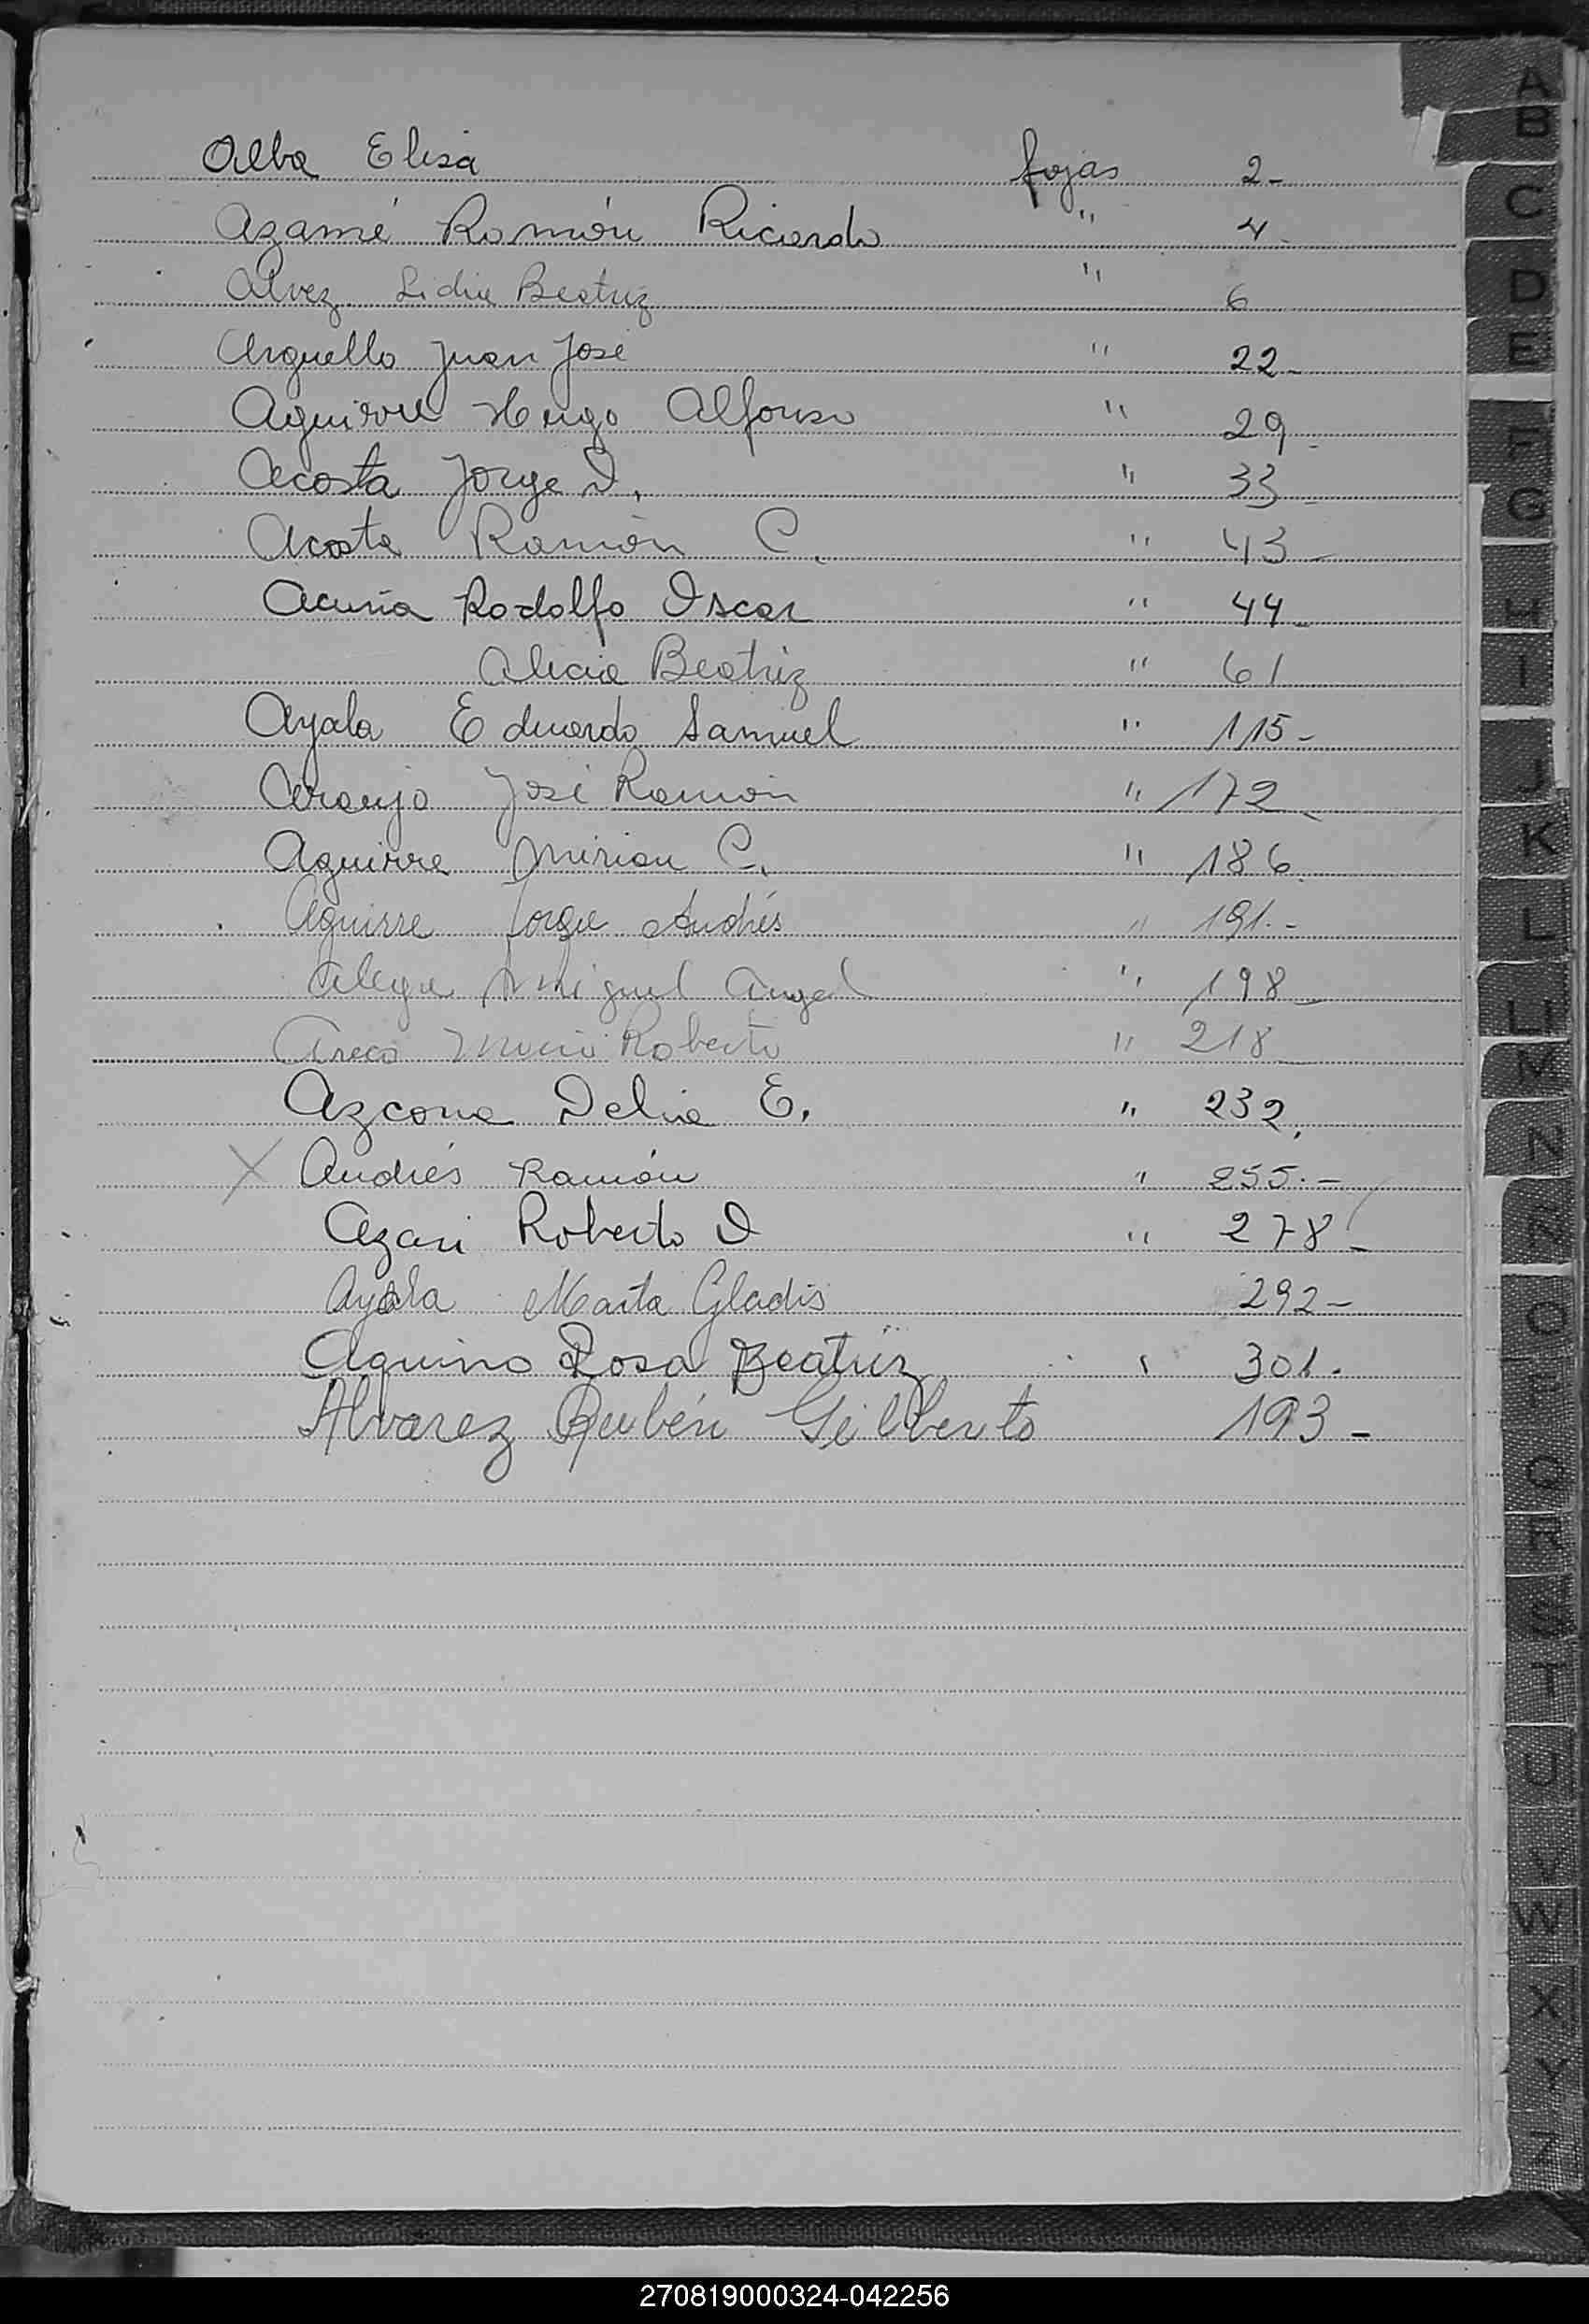 Alba Elisa fojas 2-
Azamé Ramón Ricardo " 4-
Alvez Lidia Beatriz " 6
Arguello Juan José " 22-
Aguirre Hugo Alfonso " 29-
Acosta Jorge O. " 33-
Acosta Ramón C. " 43-
Acuña Rodolfo Oscar " 44-
Alicia Beatriz " 61
Ayala Eduardo Samuel " 115-
Araujo José Ramón " 172-
Aguirre Mirian C. " 186.
Aguirre Jorge Andrés " 191.-
Alegre Miguel Angel " 198-
Areco Roberto " 218-
Azcona Delia E. " 232.
X Andrés Ramón " 255.-
Azari Roberto O " 278-
Ayala Marta Gladis 292-
Aquino Rosa Beatriz " 301.
Alvarez Rubén Gilberto 193-
A
B
C
D
E
F
G
H
I
J
K
L
LL
M
N
Ñ
O
P
Q
R
S
T
U
V
W
X
Y
Z
270819000324-042256